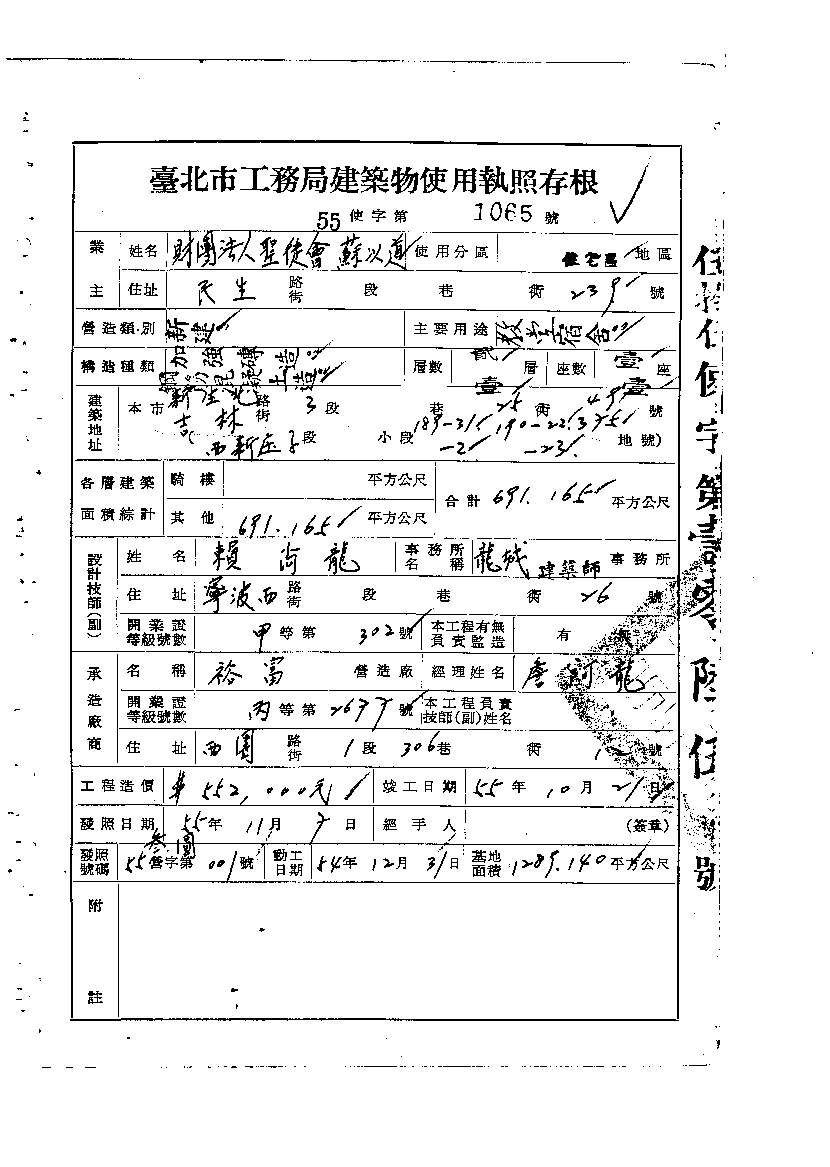 臺北市工務局建築物使用執照存根
55 使字第 1065 號
業主 姓名 財團法人聖徒會 蘇以道 使用分區 住宅區 地區
住址 民生 路街 段 巷 街 239 號
營造類別 新建 主要用途 教堂宿舍
構造種類 加強磚造 鋼筋混凝土造 層數 貳 壹 層 座數 壹 壹 座
建築地址 本市 新生北 路街 3段 巷 25 街 49 號
吉林
西新庄子段 小段 189-31 190-22 地號)
-2 -23
各層建築面積綜計 騎樓 平方公尺 合計 691.165 平方公尺
其他 691.165 平方公尺
設計技師(副) 姓名 賴尚龍 事務所名稱 龍城 建築師 事務所
住址 寧波西 路街 段 巷 街 26 號
開業證等級號數 甲等第 302 號 本工程有無負責監造 有 無
承造廠商 名稱 裕富 營造廠 經理姓名 詹阿龍
開業證等級號數 丙等第 2677 號 本工程負責技師(副)姓名
住址 西園 路街 1段 306巷 街 12 號
工程造價 $ 552,000元 竣工日期 55年10月21日
發照日期 55年11月7日 經手人 (簽章)
發照號碼 55 營字第 001 號 動工日期 54年12月31日 基地面積 1289.140 平方公尺
附註
伍拾伍使字第壹零陸伍號